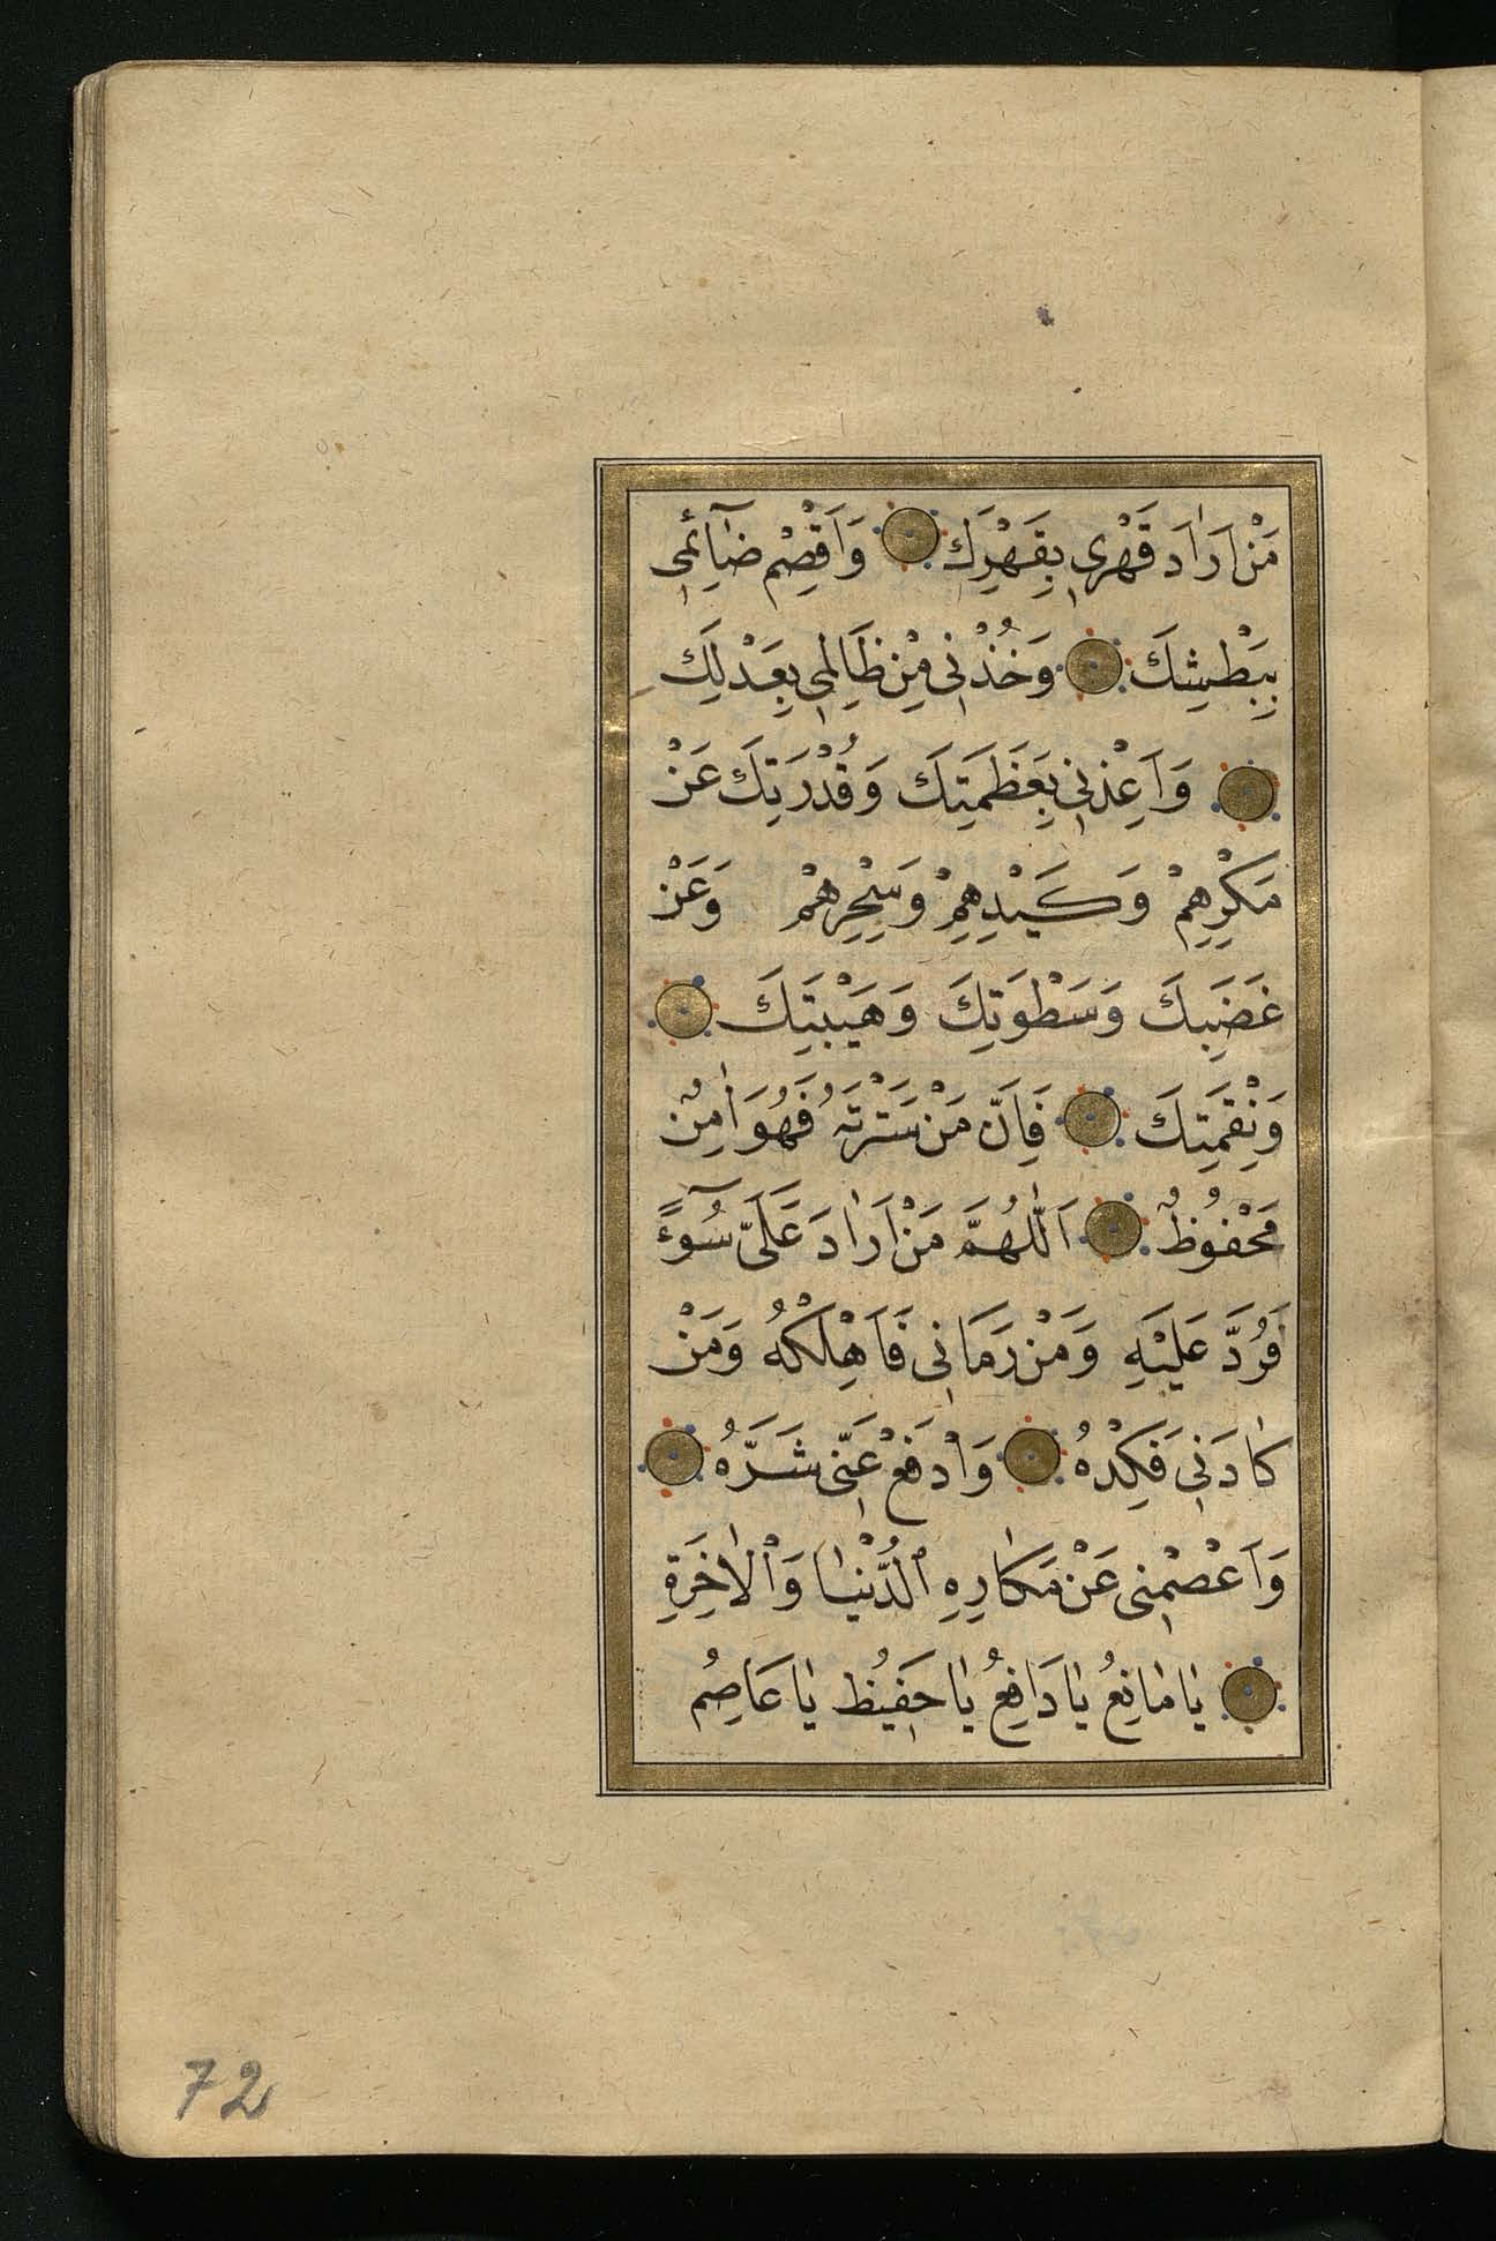 مَنْ اَرَادَ قَهْرِي بِقَهْرِكَ وَاَقْصِمْ ضَآئِمِي
بِبَطْشِكَ وَخُذْنِي مِنْ ظَالِمِي بِعَدْلِكَ
وَاَعِذْنِي بِعَظَمَتِكَ وَقُدْرَتِكَ عَنْ
مَكْرِهِمْ وَكَيْدِهِمْ وَسِحْرِهِمْ وَعَنْ
غَضَبِكَ وَسَطْوَتِكَ وَهَيْبَتِكَ
وَنِقْمَتِكَ فَاِنَّ مَنْ سَتَرْتَهُ فَهُوَ اٰمِنٌ
مَحْفُوظٌ اَللّٰهُمَّ مَنْ اَرَادَ عَلَيَّ سُوٓءً
فَرُدَّ عَلَيْهِ وَمَنْ رَمَانِي فَاَهْلِكْهُ وَمَنْ
كَادَنِي فَكِدْهُ وَادْفَعْ عَنِّي شَرَّهُ
وَاَعْصِمْنِي عَنْ مَكَارِهِ الدُّنْيَا وَالْاٰخِرَةِ
يَا مَانِعُ يَا دَافِعُ يَا حَفِيظُ يَا عَاصِمُ
72